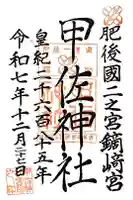 肥後國二之宮鏑﨑宮
甲佐神社
皇紀二千六百八十五年
令和七年十二月二十三日